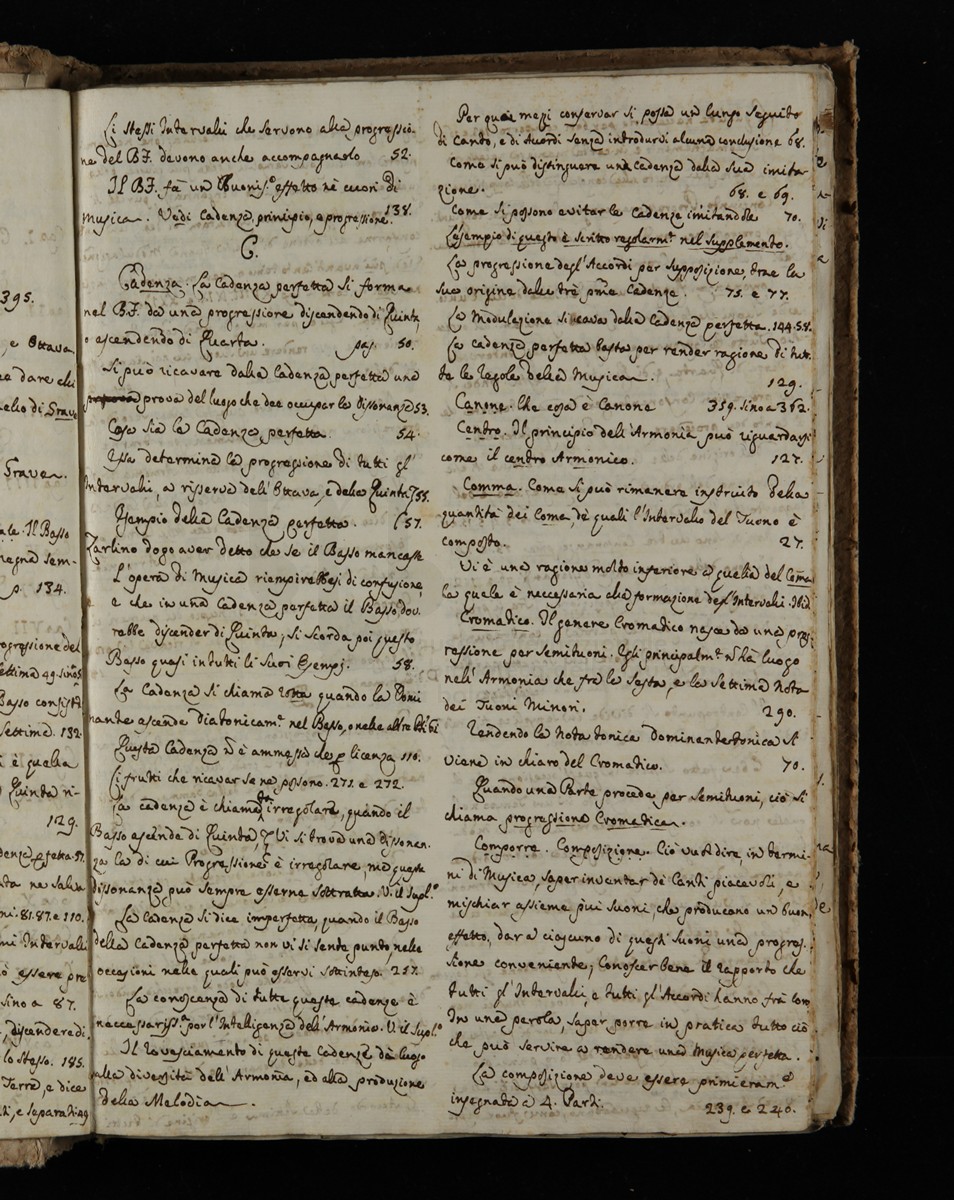 395.
, e Ottava
a dare chi
Grave.
ale. Il Basso
p. 134.
ogressione del
Basso consist
Settima. 132
i è quella
Quinta ri-
129.
ni. 81.87. e 110.
mi Intervalli
ò essere pre
sino a 87.
, discendere di
lo stesso. 185.
Terra, e dice
ti, e separati 49
Li stessi Intervalli che servono alla progressio-
ne del B.F. devono anche accompagnarlo 52.
Il B.F. fà un Buonis.º effetto nè cuori di
Musica. Vedi Cadenza, principio, e progressione. 138.
C.
Cadenza. La Cadenza perfetta si forma
nel B.F. da una progressione discendendo di Quinta,
o ascendendo di Quarta. pag. 50.
Si può ricavare dalla Cadenza perfetta una
prova del luogo che dee occupar la Dissonanza 53.
Cosa sia la Cadenza perfetta. 54.
Essa determina la progressione di tutti gl'
Intervalli, a riserva dell'Ottava, e della Quinta 55.
Esempio della Cadenza perfetta. 57.
Zarlino dopo aver detto che se il Basso mancasse
L'opera di Musica riempirebbesi di confusione
e che in una Cadenza perfetta il Basso dov-
rebbe discender di Quinta, si scorda poi questo
Basso quasi in tutti li suoi Esempj. 58.
La Cadenza si chiama rotta quando la Domi
nante ascende Diatonicamᵉ nel Basso, o nelle altre Pti 61
Questa Cadenza ñ è ammessa che p licenza 110.
Li frutti che ricavar se ne possono. 271. e 272.
La cadenza è chiamata irregolare, quando il
Basso ascende di Quinta, e Vi si trova una dissonan-
za la di cui Progressione è irregolare, ma questa
dissonanza può sempre esserne sottratta. V. il Suplº
La Cadenza si dice imperfetta, quando il Basso
della Cadenza perfetta non vi si sente punto, nelle
occasioni nelle quali può esservi sottinteso. 257.
La conoscenza di tutte queste cadenze è
necessariss.ª per l'Intelligenza dell'Armonia. V. il Suplº
Il Rovesciamento di queste Cadenze dà luogo
alla diversità dell'Armonia, ed alla produzione
della Melodia.
Per quai mezi conservar si possa un lungo seguito
di Canto, e di Acordi senza introdurvi alcuna conclusione 68.
Come si può distinguere una Cadenza dalla sua imita-
zione. 68. e 69.
Come si possono evitar le Cadenze imitandole 70.
L'esempio di questo è scritto regolarmᵉ nel supplemento.
La progressione degl'Accordi per supposizione, trae la
sua origine dalle trè pme Cadenze. 75. e 77.
La Modulazione si cava dalla Cadenza perfetta. 144.58.
La cadenza perfetta basta per render ragione di tut-
te le Regole della Musica. 129.
Canone. Che cosa è Canone 359. sino a 362.
Centro. Il principio dell'Armonia può riguardarsi
come il centro Armonico. 127.
Comma. Come si può rimanere instruito della
quantità dei Coma de quali l'Intervallo del Tuono è
composto. 27.
Vi è una ragione molto inferiore a quella del Coma
la quale è necessaria alla formazione degl'Intervalli. Ibid
Cromatico. Il genere Cromatico nasce da una prog-
ressione per Semituoni. Egli principalmᵉ ñ hà luogo
nell'Armonia che frà la Sesta, e la Settima Nota
dei Tuoni Minori. 290.
Rendendo la Nota tonica Dominante tonica si
viene in chiaro del Cromatico. 70.
Quando una Parte procede per semituoni, ciò si
chiama progressione Cromatica.
Comporre. Composizione. Ciò vuol dire in termi-
ni di Musica, saper inventar di Canti piacevoli, e
mischiar assieme più Suoni, che producano un buon,
effetto, dar a ciascuno di questi Suoni una progres-
sione conveniente; Conoscer bene il rapporto che
tutti gl'Intervalli, e tutti gl'Accordi hanno frà loro
In una parola, saper porre in pratica tutto ciò
che può servire a rendere una Musica perfetta.
La composizione deve essere primieramᵉ
insegnata a 4. Parti. 239. e 240.